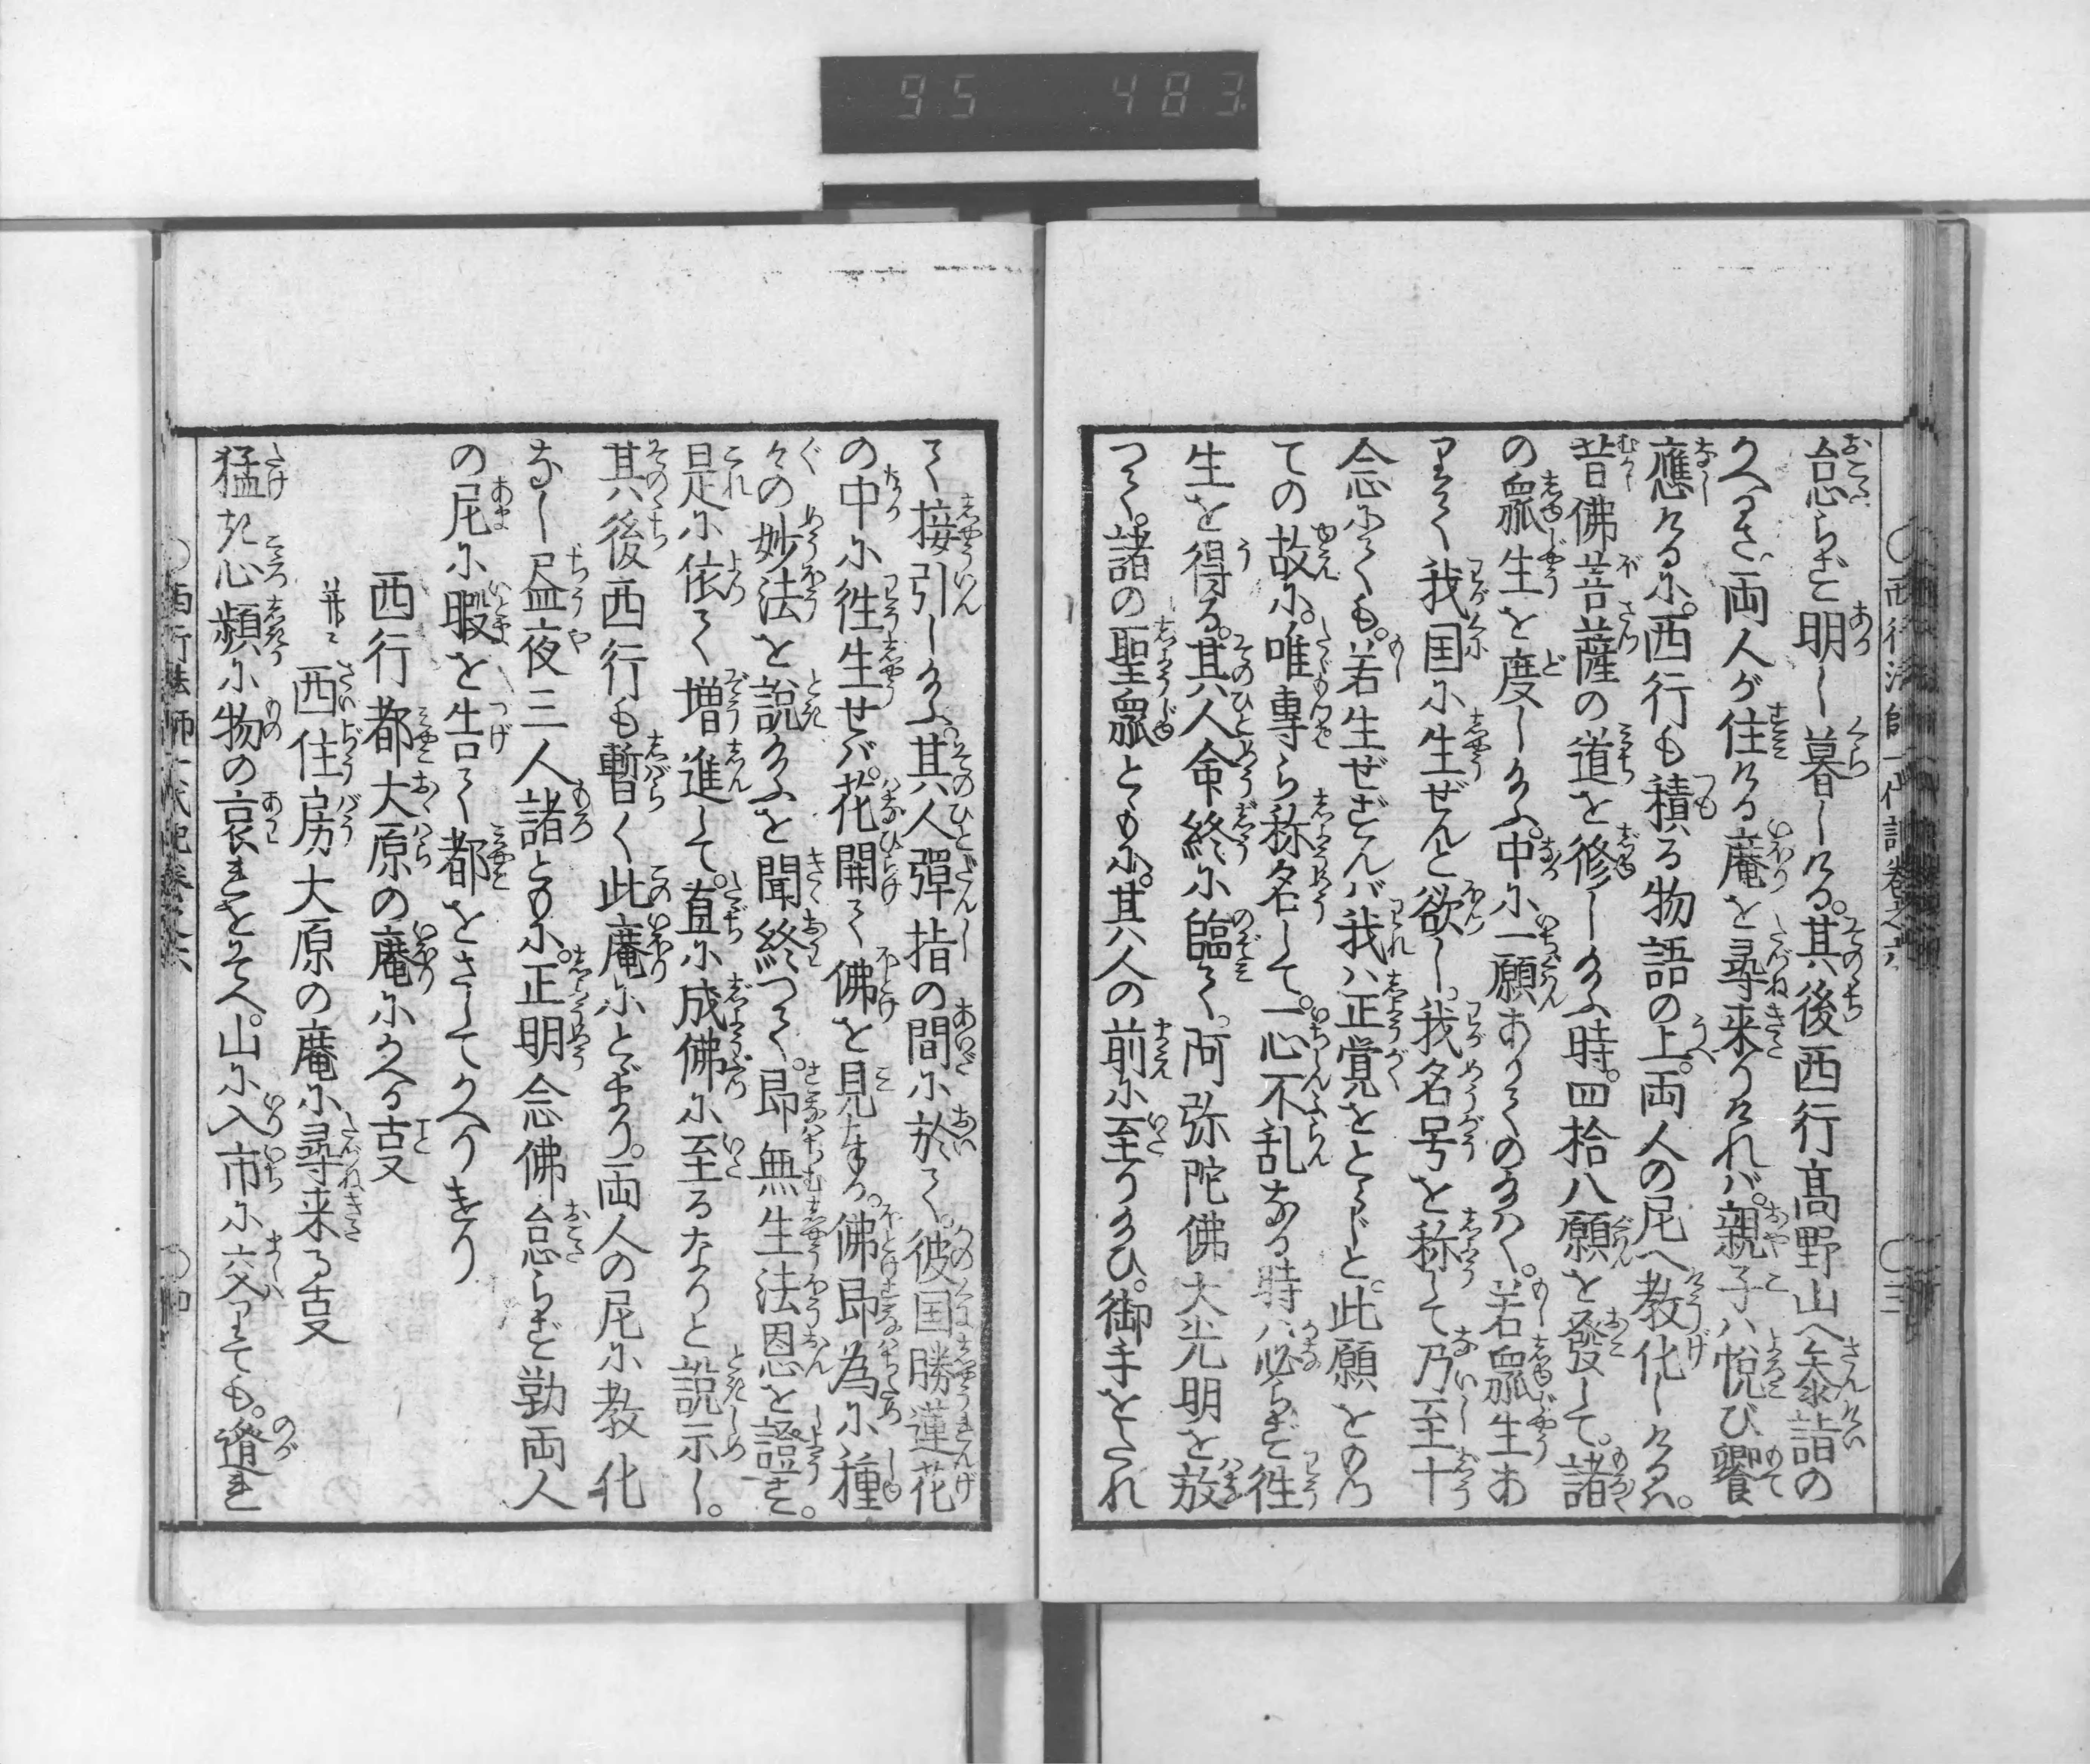 95 483
西行法師一代記巻之六 三
怠らず明し暮しける。其後西行高野山へ参詣の
かへるさ両人が住ける庵を尋来りければ。親子ハ悦び饗
應けるに。西行も積る物語の上。両人の尼へ教化しけるは。
昔佛菩薩の道を修し給ふ時。四拾八願を發して。諸
の衆生を度し給ふ。中に一願ありての給はく。若衆生あ
りて我国に生ぜんと欲し。我名号を称して乃至十
念にても。若生ぜずんば我ハ正覚をとらじと。此願をもつ
ての故に。唯專ら称名して。一心不乱なる時ハ必らず徃
生を得る。其人命終に臨て。阿弥陀佛大光明を放
つて。諸の聖衆ともに。其人の前に至り給ひ。御手をたれ
て接引し給ふ。其人彈指の間に於て。彼国勝蓮花
の中に徃生せバ。花開て佛を見奉る。佛即為に種
々の妙法を説給ふを聞終つて。即無生法恩を證す。
是に依て増進して。直に成佛に至るなりと説示し。
其後西行も暫く此庵にとゞまり。両人の尼に教化
なし昼夜三人諸ともに。正明念佛怠らず勤両人
の尼に暇を告て都をさしてかへりきり
西行都大原の庵にかへる事
并ニ 西住房大原の庵に尋来る事
猛き心頻に物の哀れをそへ。山に入市に交りても。遁れ
西行法師一代記巻之六 四